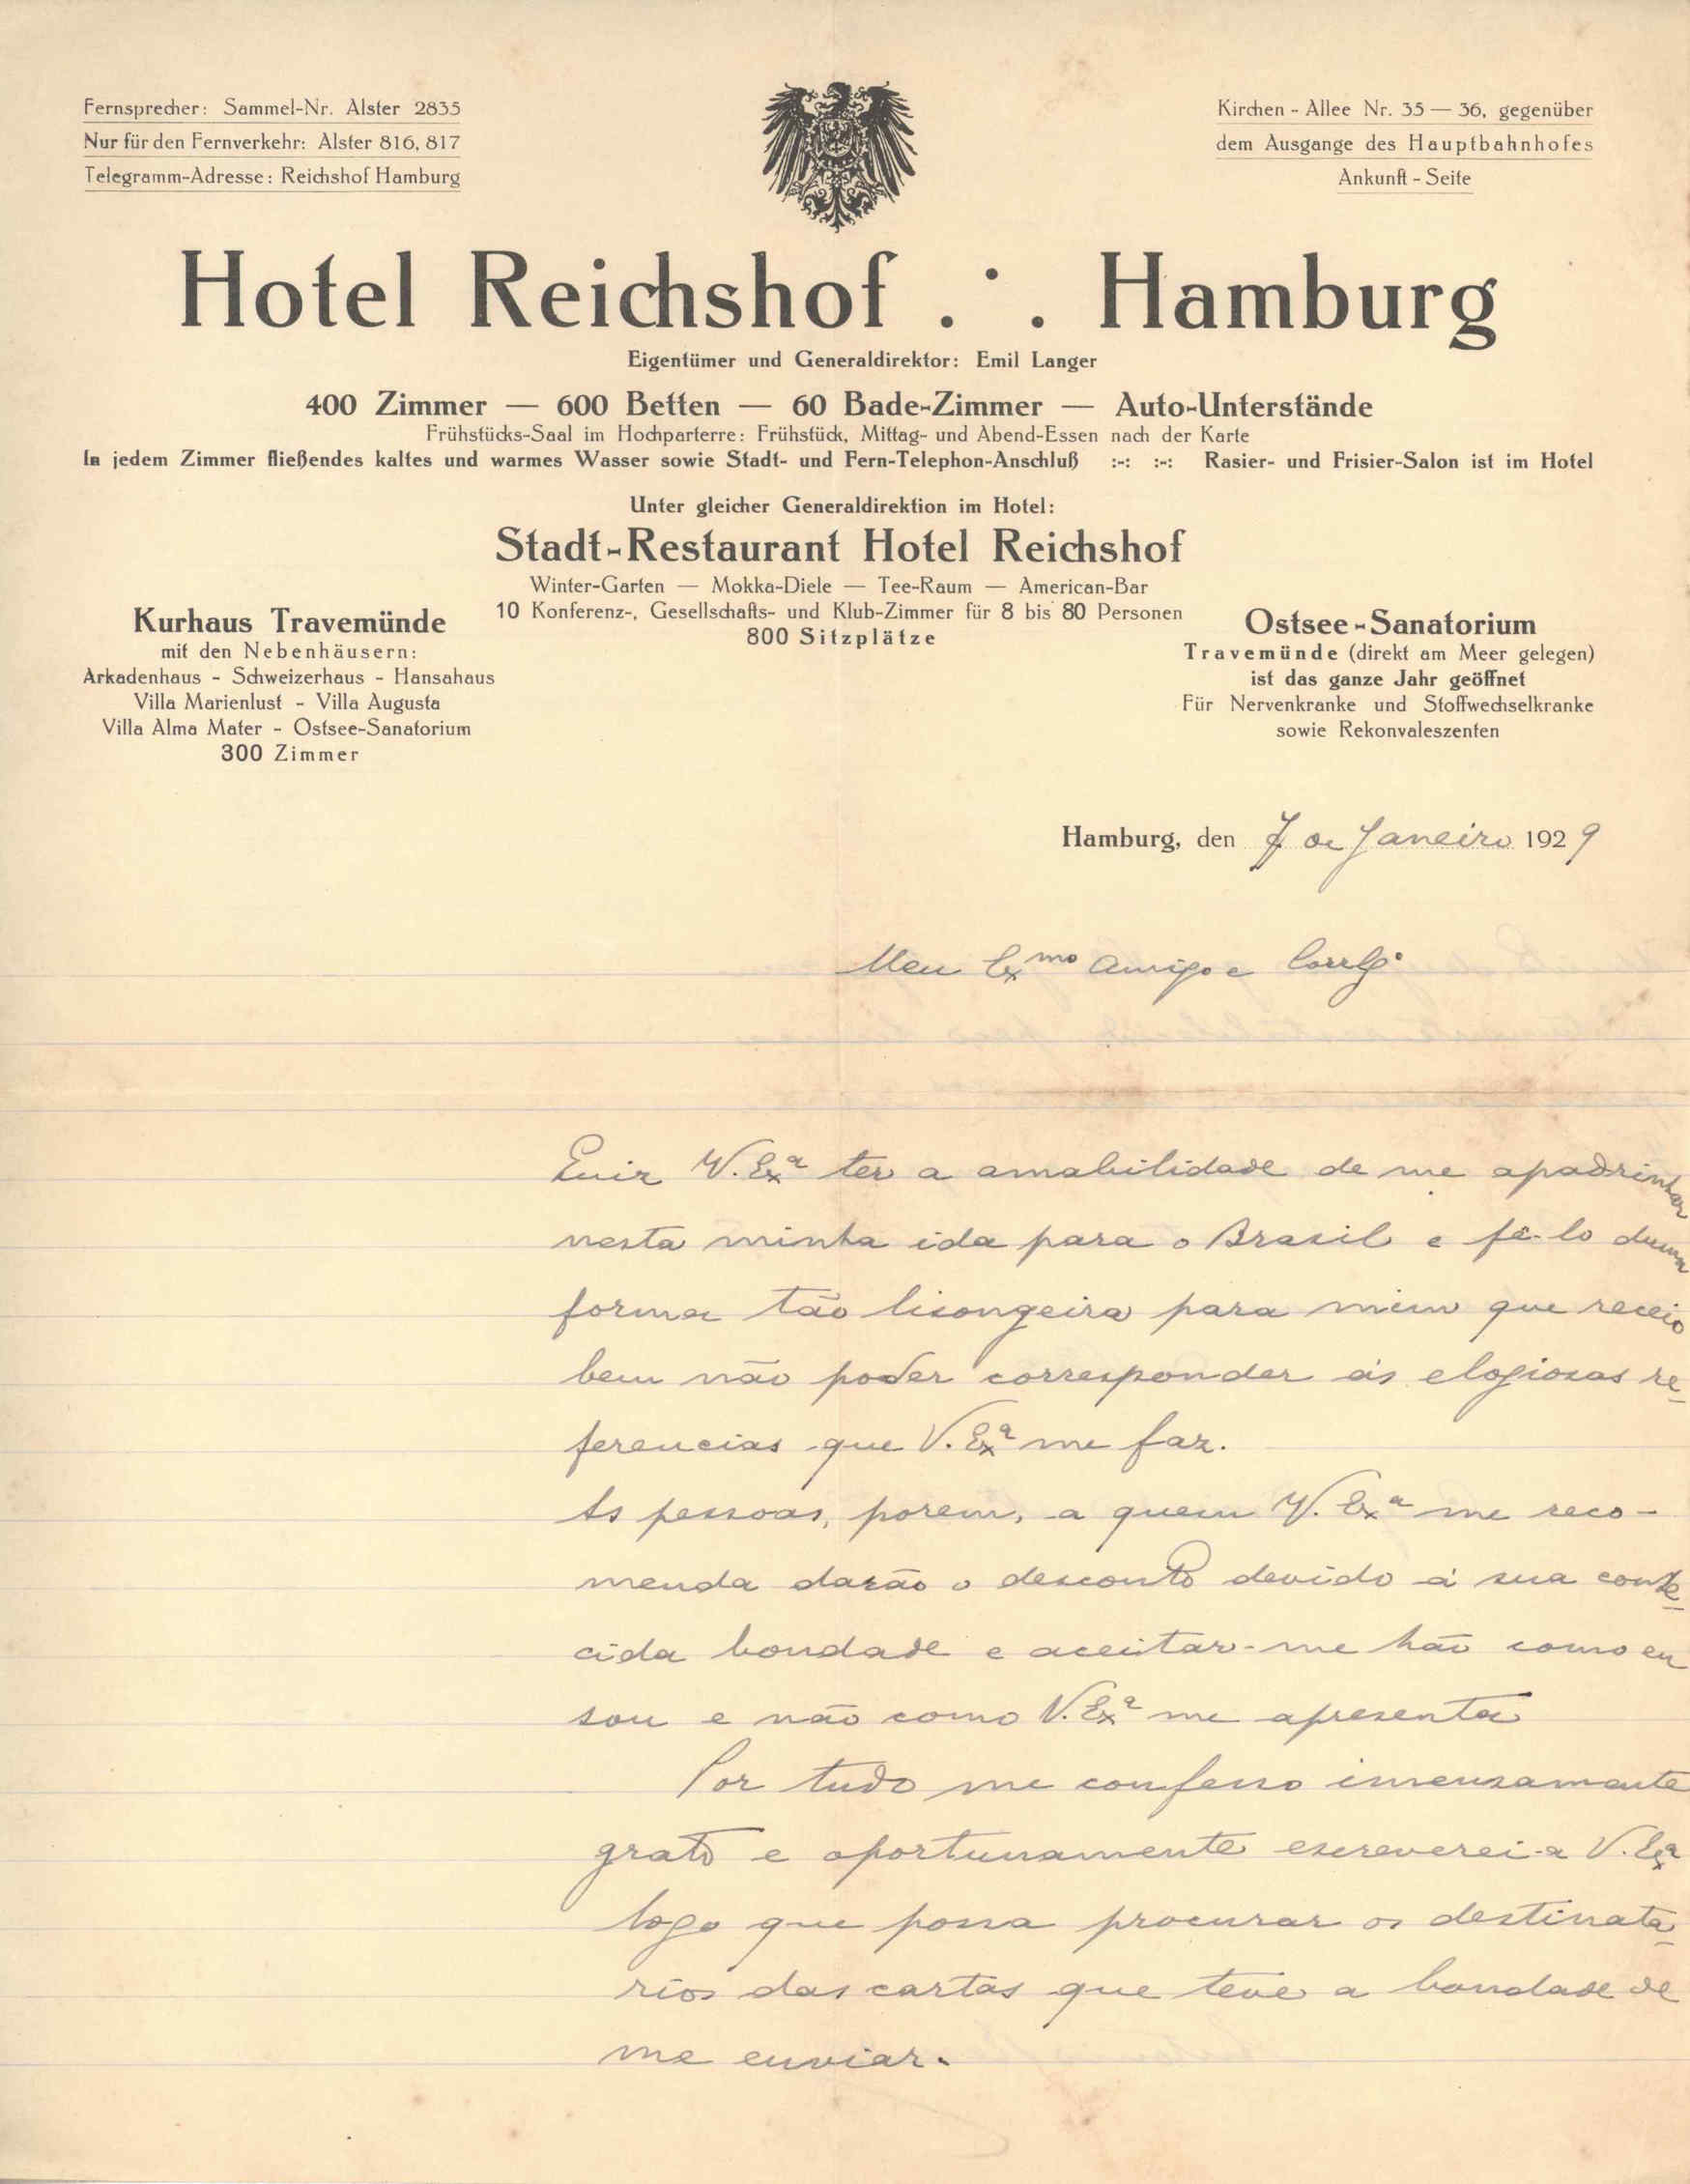 Fernsprecher: Sammel-Nr. Alster 2835
Nur für den Fernverkehr: Alster 816, 817
Telegramm-Adresse: Reichshof Hamburg
Kirchen - Allee Nr. 35 — 36, gegenüber
dem Ausgange des Hauptbahnhofes
Ankunft - Seite
Hotel Reichshof . · . Hamburg
Eigentümer und Generaldirektor: Emil Langer
400 Zimmer — 600 Betten — 60 Bade-Zimmer — Auto-Unterstände
Frühstücks-Saal im Hochparterre: Frühstück, Mittag- und Abend-Essen nach der Karte
In jedem Zimmer fließendes kaltes und warmes Wasser sowie Stadt- und Fern-Telephon-Anschluß :-: :-: Rasier- und Frisier-Salon ist im Hotel
Unter gleicher Generaldirektion im Hotel:
Stadt-Restaurant Hotel Reichshof
Winter-Garten — Mokka-Diele — Tee-Raum — American-Bar
10 Konferenz-, Gesellschafts- und Klub-Zimmer für 8 bis 80 Personen
800 Sitzplätze
Kurhaus Travemünde
mit den Nebenhäusern:
Arkadenhaus - Schweizerhaus - Hansahaus
Villa Marienlust - Villa Augusta
Villa Alma Mater - Ostsee-Sanatorium
300 Zimmer
Ostsee-Sanatorium
Travemünde (direkt am Meer gelegen)
ist das ganze Jahr geöffnet
Für Nervenkranke und Stoffwechselkranke
sowie Rekonvaleszenten
Hamburg, den 7 de Janeiro 1929
Meu Exmo Amigo e
Quiz V. Exa ter a amabilidade de me apadrinhar
nesta minha ida para o Brasil e fê-lo duma
forma tão lisongeira para mim que receio
bem não poder corresponder ás elogiosas re-
ferencias que V. Exa me faz.
As pessoas, porem, a quem V. Exa me reco-
menda darão o desconto devido á sua conhe-
cida bondade e aceitar-me hão como eu
sou e não como V. Exa me apresenta
Por tudo me confesso imensamente
grato e oportunamente escreverei a V. Exa
logo que possa procurar os destinata-
rios das cartas que teve a bondade de
me enviar.